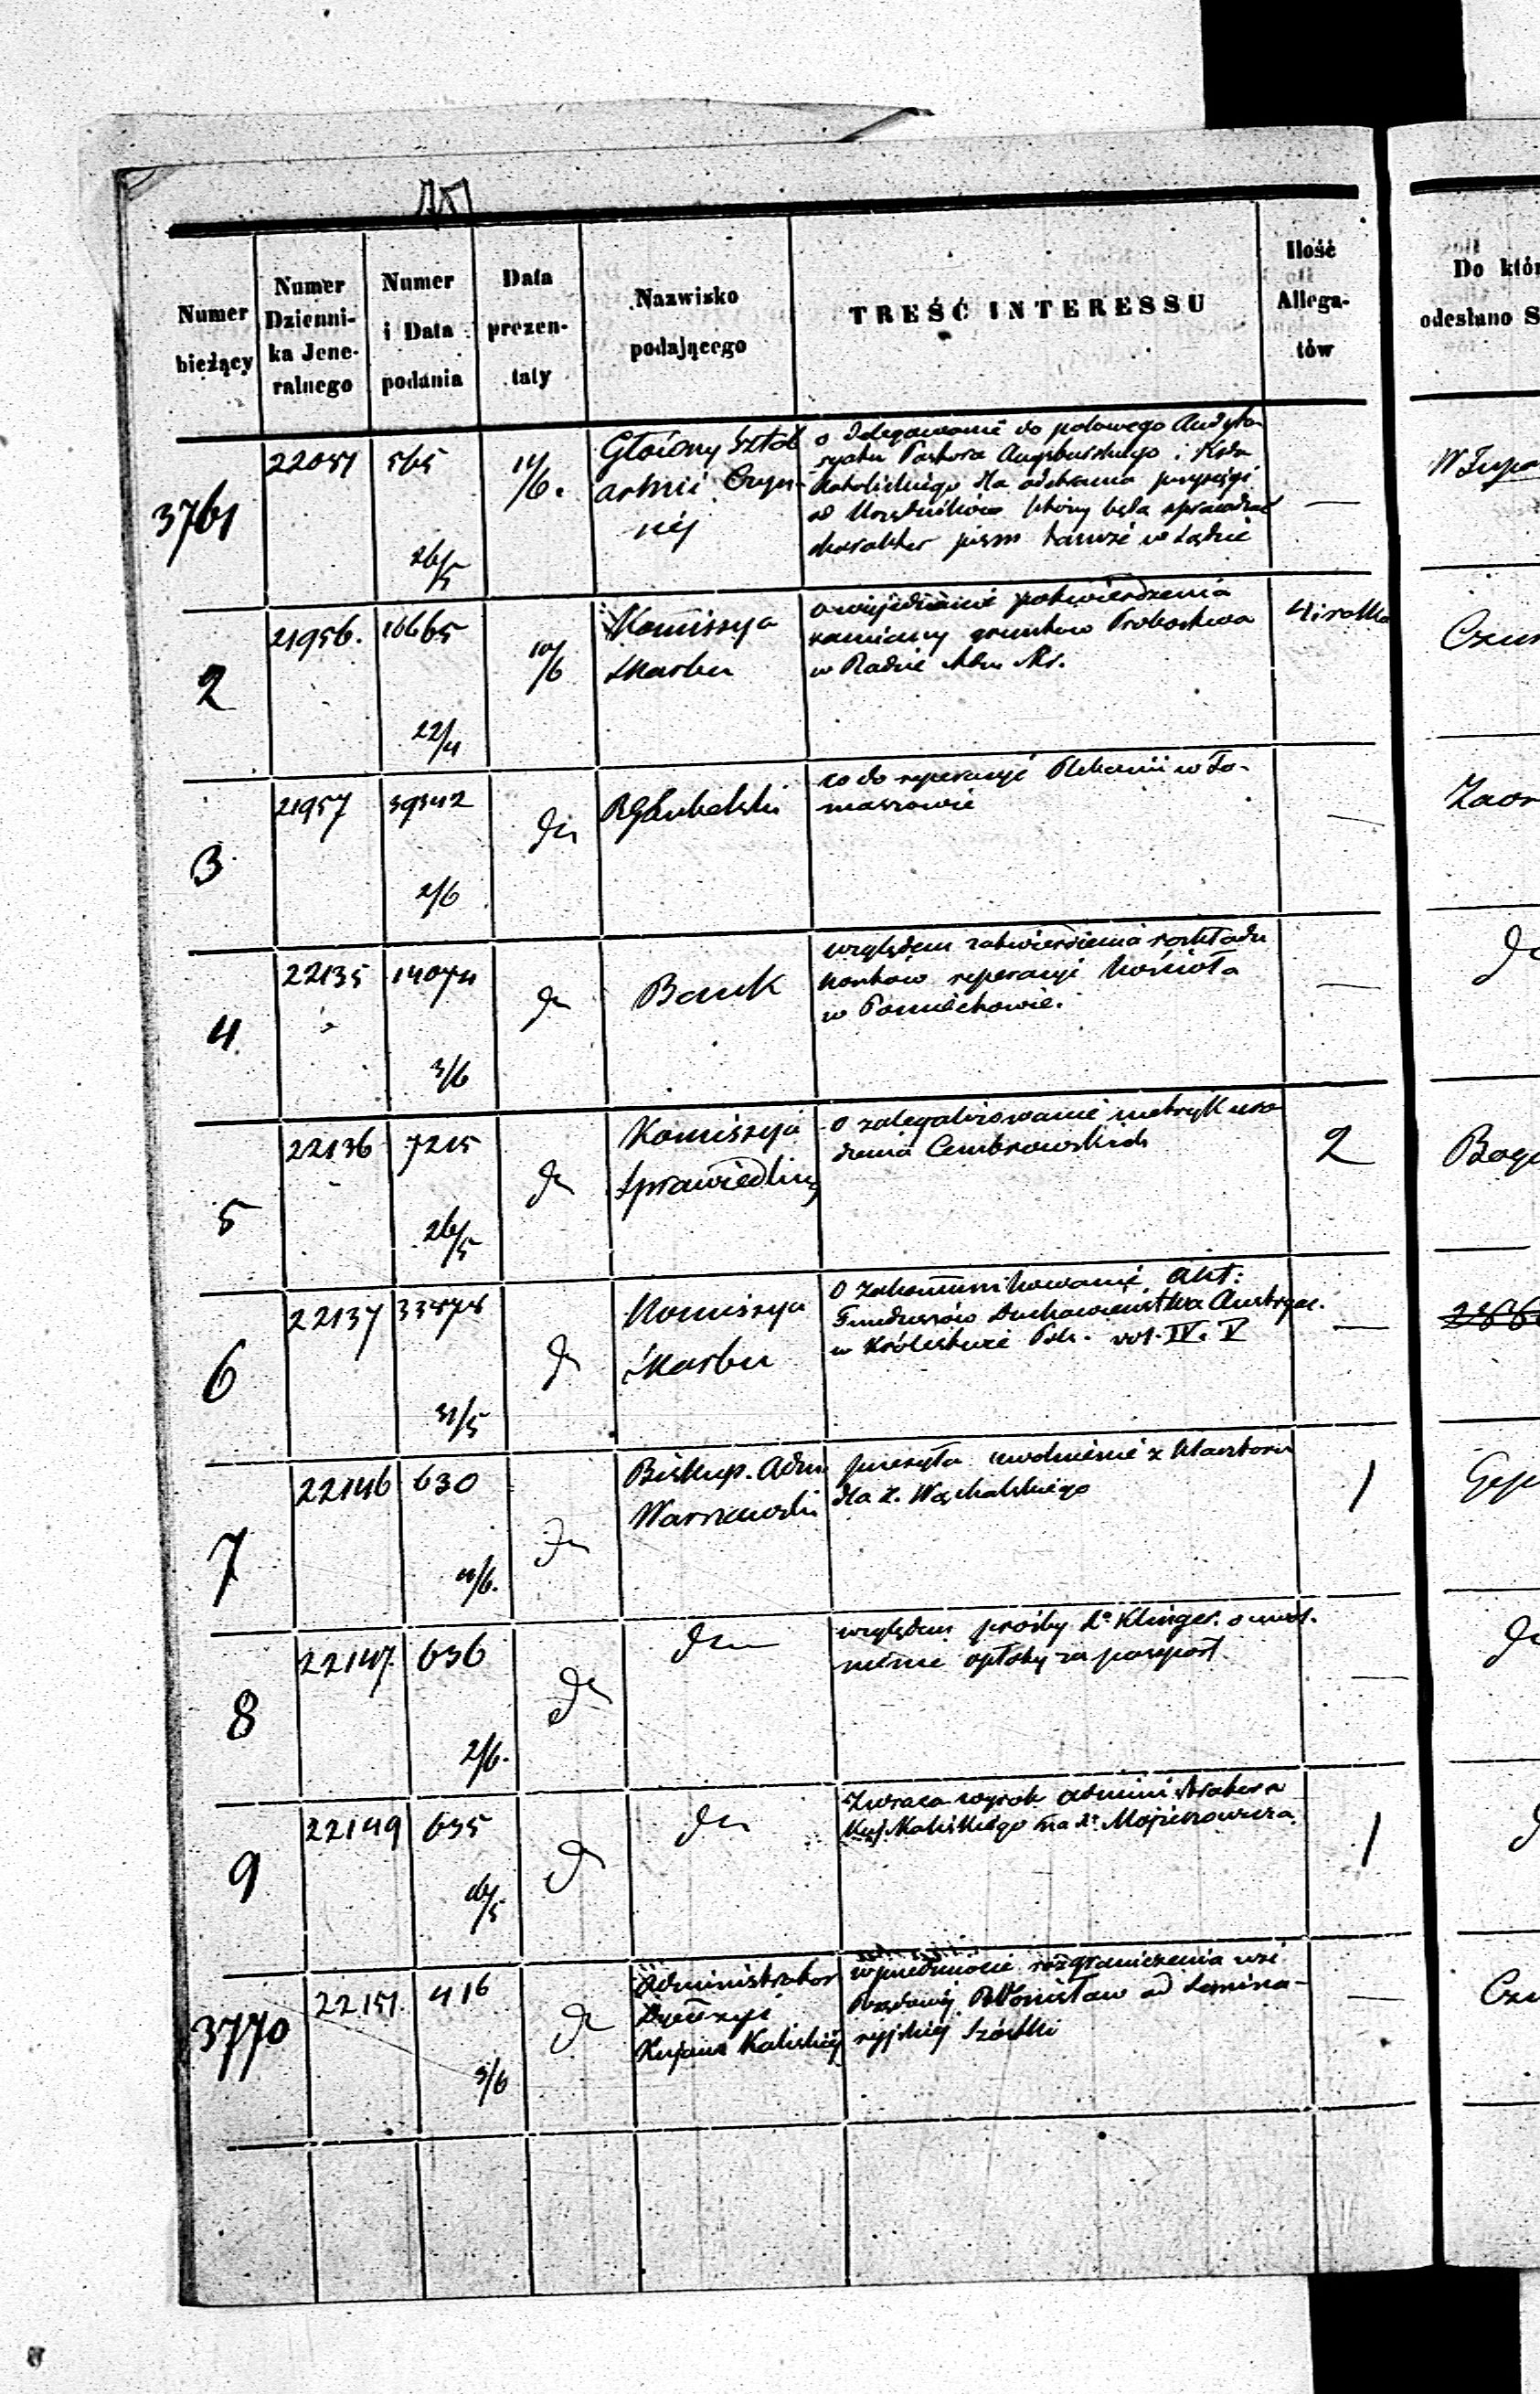 Numer bieżący
Numer Dzienni-
ka Jene-
ralnego
Numer
i Data
podania
Data
prezen-
taty
Nazwisko
podającego
TREŚĆ INTERESSU
Ilość
Allega-
tów
Do któr
odesłano S
3761
22051
565
26/5
11/6.
Główny Sztab
armii Czyn-
néj
o delegowanie do polowego Audyto-
ryatu Pastora Augsburskiego i Xdza
Katolickiego dla odebrania przysięgi
od Urzędników którzy będą sprawdzać
charakter pism
2
21956.
16665
22/4
10/6
Komissya
Skarbu
o wyjednanie potwierdzenia
zamiany gruntów Probostwa
w Radzie Adm. Kr.
3
21957
39342
2/6
do
RG Lubelski
co do reperacyi Plebanii w To-
maszowie
4
22135
14074
3/6
do
Bank
względem zatwierdzenia rozkładu
kosztów reperacyi kościoła
w Pomiechowie.
do
5
22136
7215
26/5
do
Komissya
Sprawiedliw
O zalegalizowanie metryk uro-
dzenia Cembrowskich
2
6
22137
33474
31/5
do
Komissya
Skarbu
O zakomunikowanie Akt:
Funduszów Duchowieństwa Austryac.
w Królestwie Pols. vol. IV. V
7
22146
630
4/6.
do
Biskup. Adm
Warszawski
przesyła uwolnienie z klasztoru
dla X. Wąchalskiego
1
8
22147
636
2/6.
do
do
względem prośby Xa Klinger. o uwol-
nienie opłaty za paszport.
do
9
22149
635
26/5
do
do
Zwraca wyrok administratora
Kuj Kaliskiego na Xa Mojzeszowicza
1
3770
22151
416
3/6
do
Administrator
Dyecezyi
Kujaws Kaliskiéj
w przedmiocie rozgraniczenia wsi
Rządowéj od Semina-
ryjskiéj Szóstki